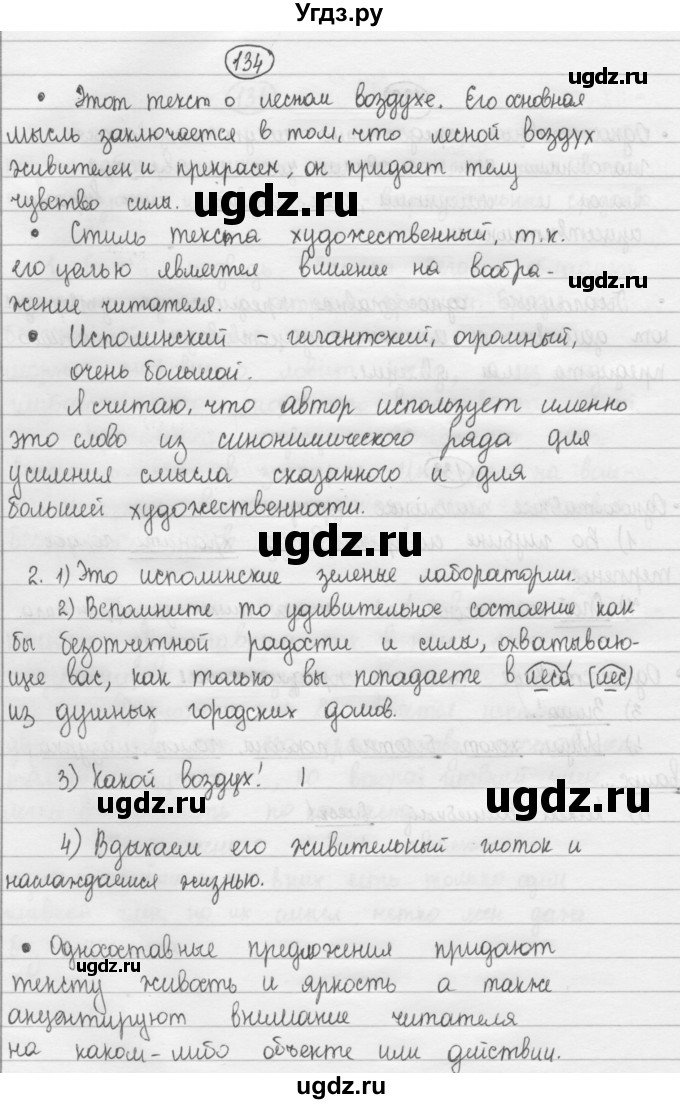 Угдз.ру
134
ugdz.ru
• Этот текст о лесном воздухе. Его основная
мысль заключается в том, что лесной воздух
живителен и прекрасен, он придает телу
чувство силы.
ugdz.ru
• Стиль текста художественный, т.к.
его целью является влияние на вообра-
жение читателя.
ugdz.ru
• Исполинский – гигантский, огромный,
очень большой.
Я считаю, что автор использует именно
это слово из синонимического ряда для
усиления смысла сказанного и для
большей художественности.
ugdz.ru
2. 1) Это исполинские зеленые лаборатории.
2) Вспомните то удивительное состояние как
бы безотчетной радости и силы, охватываю-
щее вас, как только вы попадаете в леса (лес)
из душных городских домов.
ugdz.ru
3) Какой воздух! |
ugdz.ru
ugdz.ru
4) Вдыхаем его живительный глоток и
наслаждаемся жизнью.
• Односоставные предложения придают
ugdz.ru
тексту живость и яркость а также
акцентируют внимание читателя
ugdz.ru
на каком-либо объекте или действии.
ugdz.ru